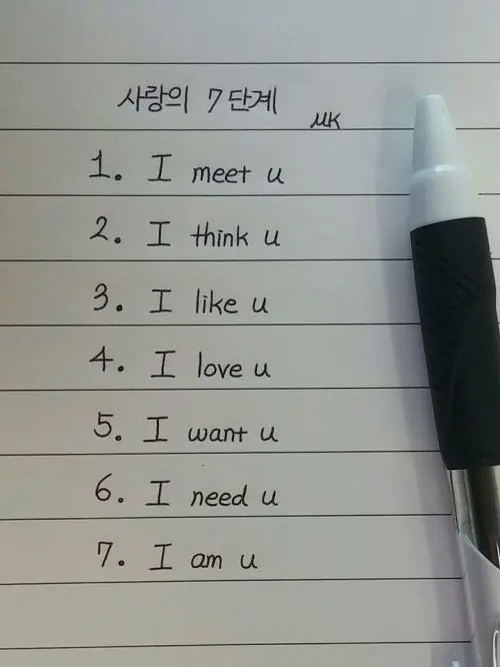 사랑의 7단계
MK
1. I meet u
2. I think u
3. I like u
4. I love u
5. I want u
6. I need u
7. I am u